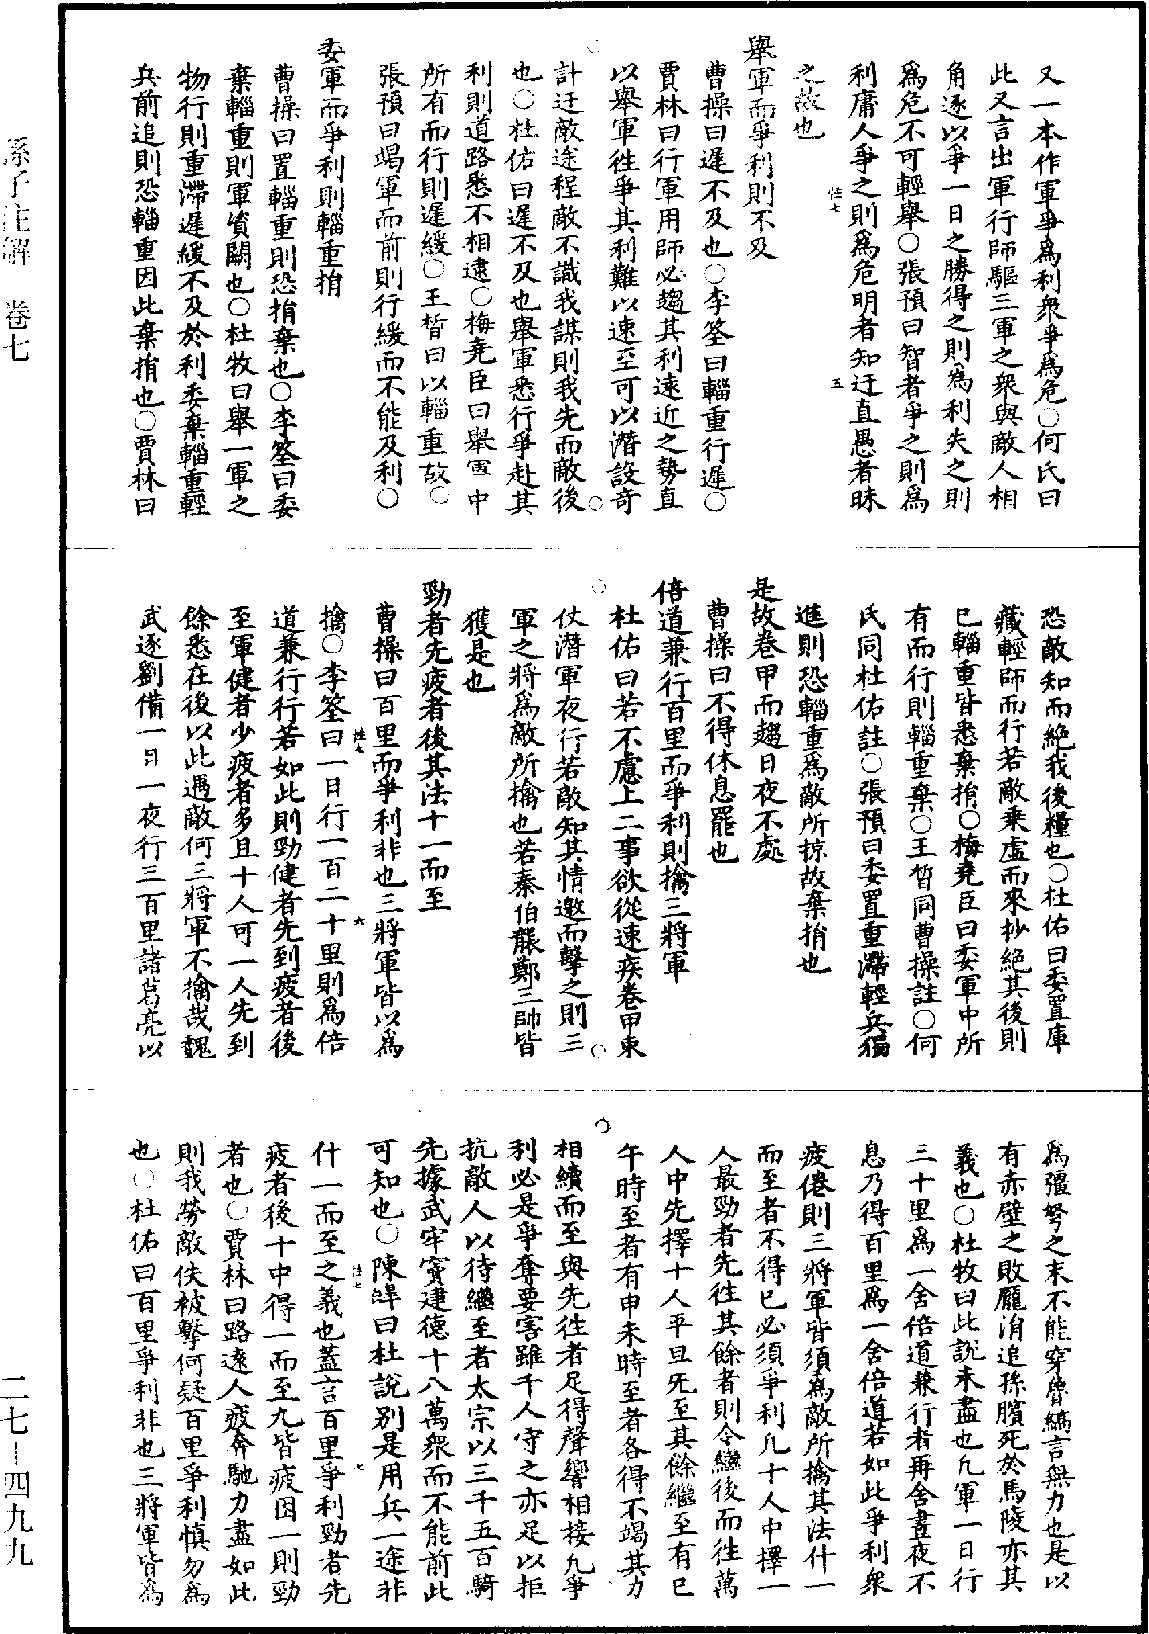 孫子注解　卷七
又一本作軍爭爲利衆爭爲危○何氏曰
此又言出軍行師驅三軍之衆與敵人相
角逐以爭一日之勝得之則爲利失之則
爲危不可輕舉○張預曰智者爭之則爲
利庸人爭之則爲危明者知迂直愚者昧
之故也
舉軍而爭利則不及
曹操曰遲不及也○李筌曰輜重行遲○
賈林曰行軍用師必趨其利遠近之勢直
以舉軍往爭其利難以速至可以潛設奇
計迂敵途程敵不識我謀則我先而敵後
也○杜佑曰遲不及也舉軍悉行爭赴其
利則道路悉不相逮○梅堯臣曰舉軍中
所有而行則遲緩○王晳曰以輜重故○
張預曰竭軍而前則行緩而不能及利○
委軍而爭利則輜重捐
曹操曰置輜重則恐捐棄也○李筌曰委
棄輜重則軍資闕也○杜牧曰舉一軍之
物行則重滯遲緩不及於利委棄輜重輕
兵前追則恐輜重因此棄捐也○賈林曰
恐敵知而絶我後糧也○杜佑曰委置庫
藏輕師而行若敵乘虛而來抄絶其後則
已輜重皆悉棄捐○梅堯臣曰委軍中所
有而行則輜重棄○王晳同曹操註○何
氏同杜佑註○張預曰委置重滯輕兵獨
進則恐輜重爲敵所掠故棄捐也
是故卷甲而趨日夜不處
曹操曰不得休息罷也
倍道兼行百里而爭利則擒三將軍
杜佑曰若不慮上二事欲從速疾卷甲束
仗潛軍夜行若敵知其情邀而擊之則三
軍之將爲敵所擒也若秦伯襲鄭三帥皆
獲是也
勁者先疲者後其法十一而至
曹操曰百里而爭利非也三將軍皆以爲
擒○李筌曰一日行一百二十里則爲倍
道兼行行若如此則勁健者先到疲者後
至軍健者少疲者多且十人可一人先到
餘悉在後以此遇敵何三將軍不擒哉魏
武逐劉備一日一夜行三百里諸葛亮以
爲彊弩之末不能穿魯縞言無力也是以
有赤壁之敗龐涓追孫臏死於馬陵亦其
義也○杜牧曰此說未盡也凡軍一日行
三十里爲一舍倍道兼行者再舍晝夜不
息乃得百里爲一舍倍道若如此爭利衆
疲倦則三將軍皆須爲敵所擒其法什一
而至者不得已必須爭利凡十人中擇一
人最勁者先往其餘者則令繼後而往萬
人中先擇十人平旦先至其餘繼至有巳
午時至者有申未時至者各得不竭其力
相續而至與先往者足得聲響相接凡爭
利必是爭奪要害雖千人守之亦足以拒
抗敵人以待繼至者太宗以三千五百騎
先據武牢竇建德十八萬衆而不能前此
可知也○陳皞曰杜說別是用兵一途非
什一而至之義也蓋言百里爭利勁者先
疲者後十中得一而至九皆疲困一則勁
者也○賈林曰路遠人疲奔馳力盡如此
則我勞敵佚被擊何疑百里爭利慎勿爲
也○杜佑曰百里爭利非也三將軍皆爲
二七—四九九